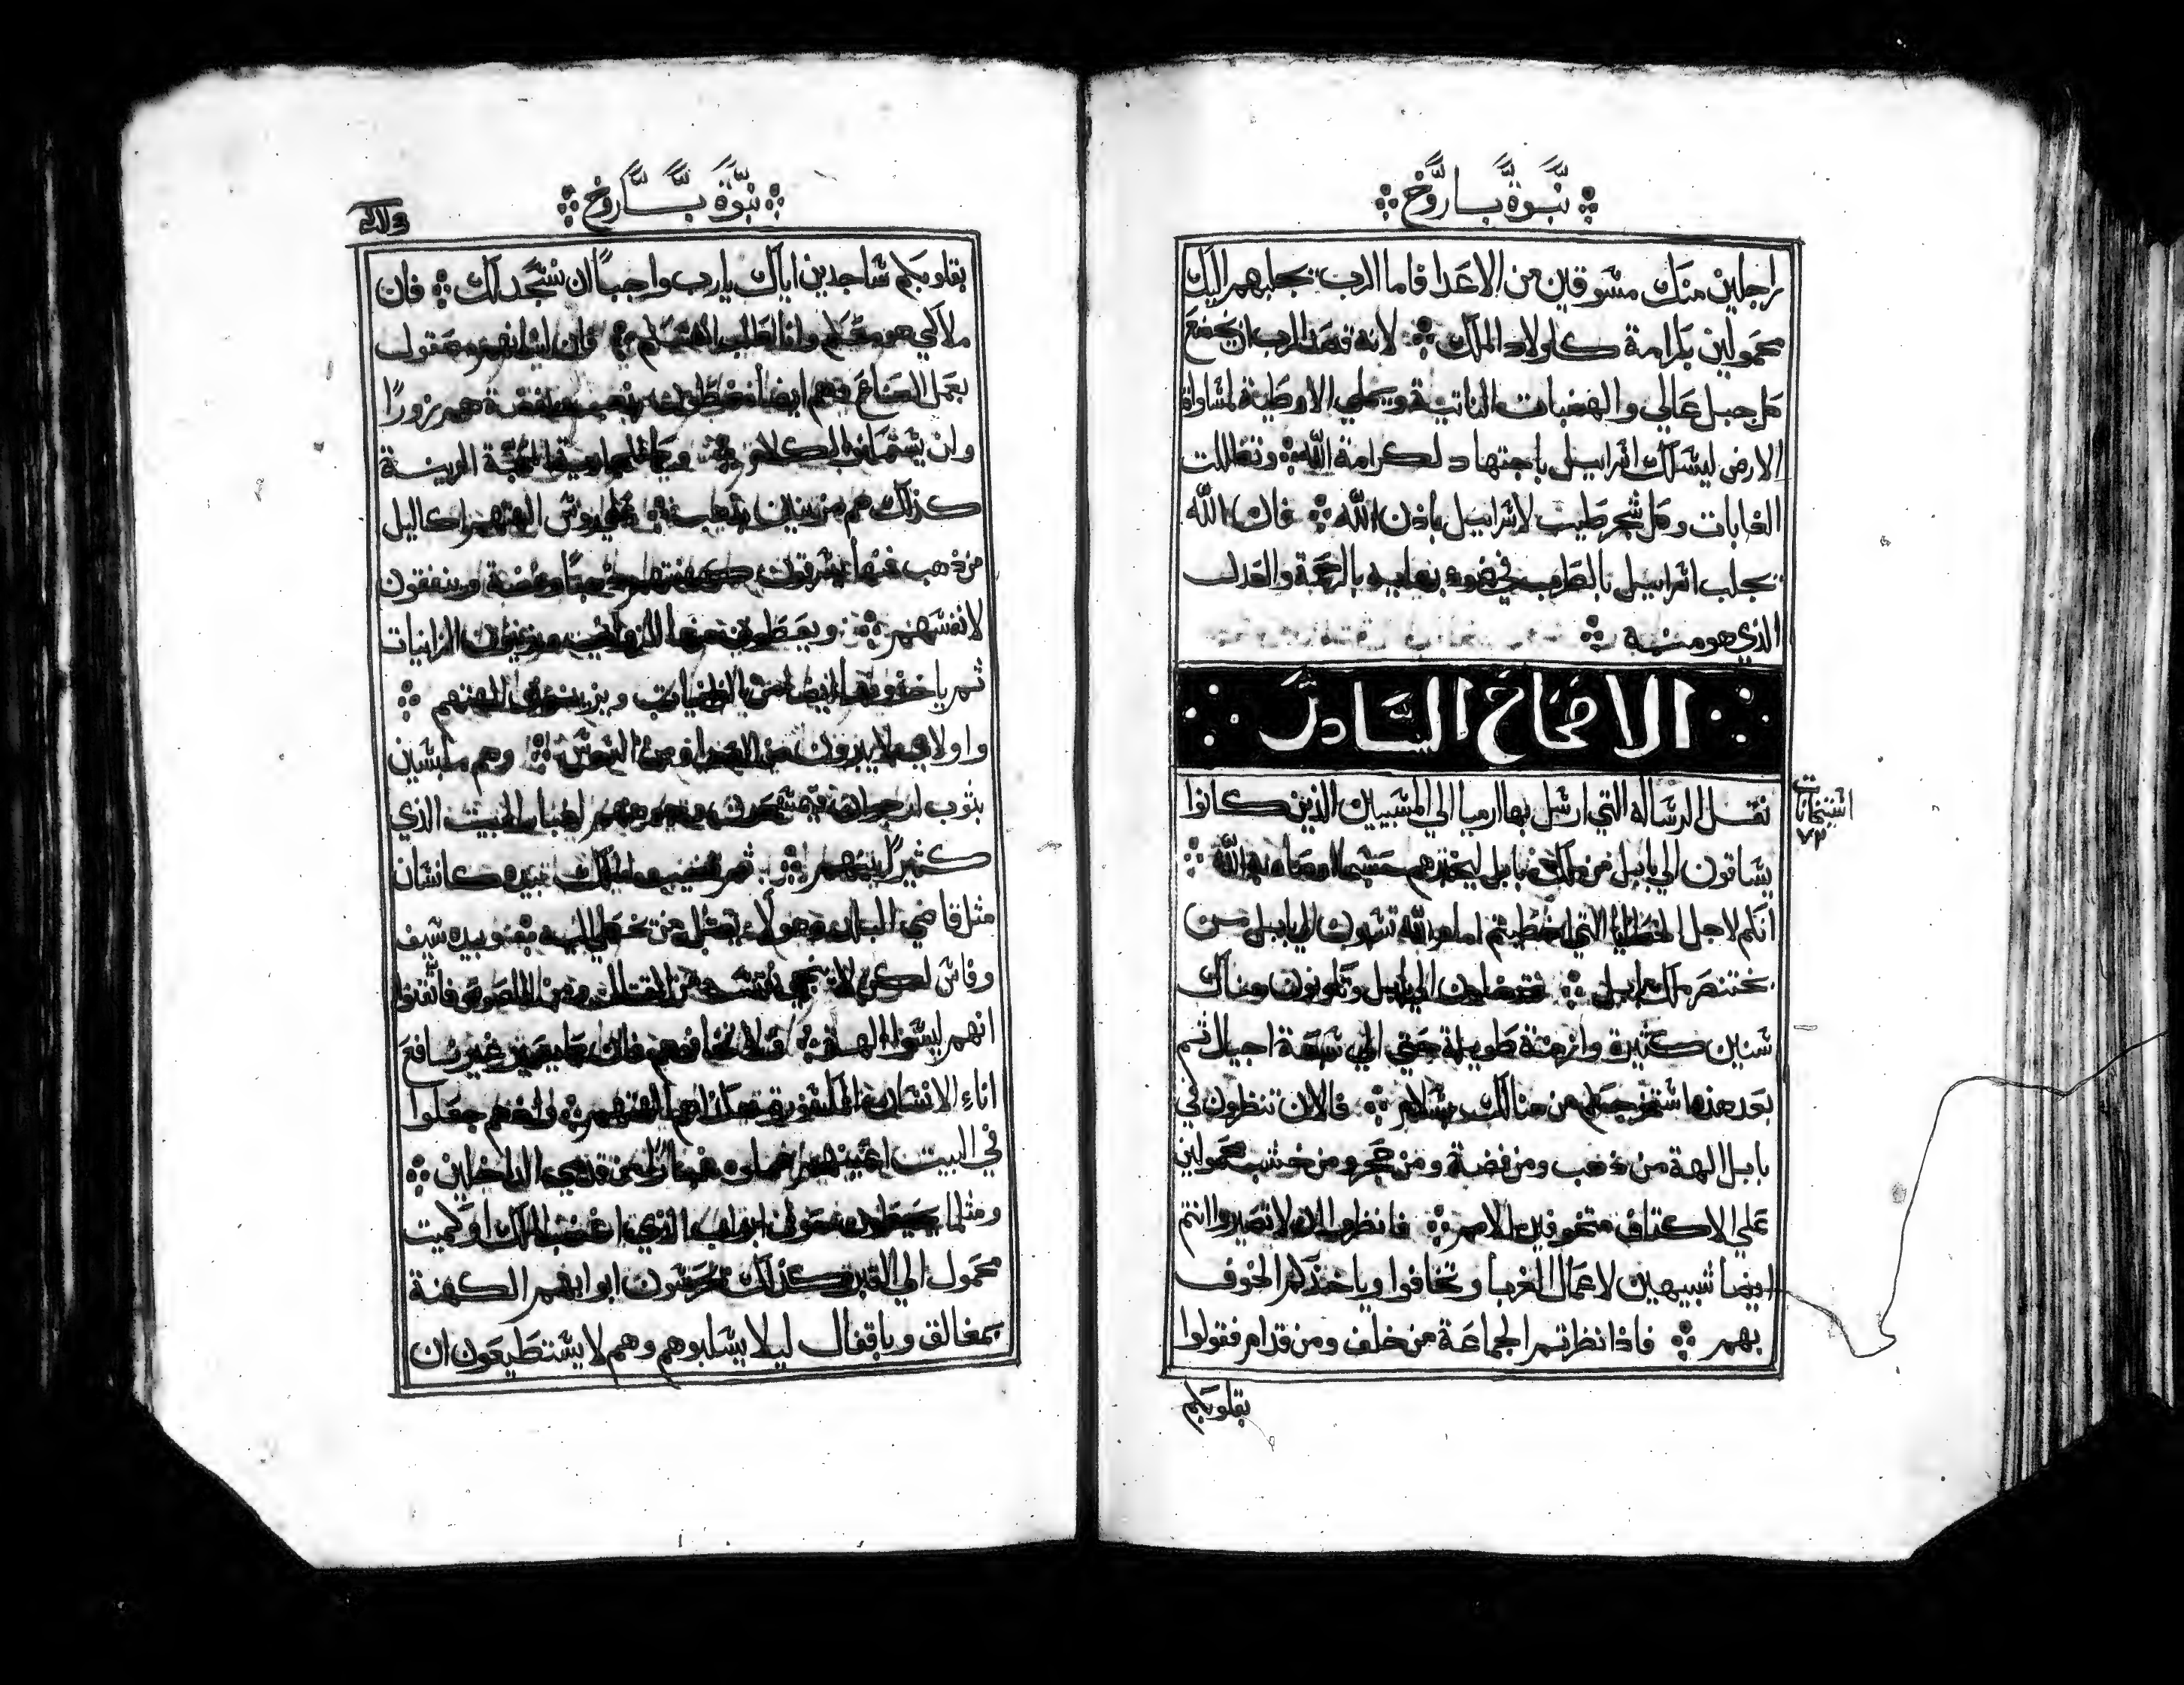 نبوة باروخ
راجلين منك مسوقين من الاعدا فاما الرب يجلبهم اليك
محمولين بكرامة كاولاد الملك لانه قصد الرب ان يخضع
كل جبل عالي والهضبات الناتية ويملي الاوطية لمساواة
الارض ليسلك اسراييل باجتهاد لكرامة الله وتظللت
الغابات وكل شجر طيب لاسراييل باذن الله فان الله
يجلب اسراييل بالطرب في ضوء بهايه بالرحمة والعدل
الذي هو منه
الاصحاح السادس
نقل الرساله التي ارسل بها ارميا الي المسبيين الذين كانوا
يساقون الي بابل من ملك بابل ليخبرهم حسبما امره الله
انكم لاجل الخطايا التي اخطيتم امام الله تسبون الي بابل من
بختنصر ملك بابل فتدخلون الي بابل وتكونون هناك
سنين كثيرة وازمنة طويلة حتي الي سبعة اجيال ثم
بعد هذا ساخرجكم من هنالك بسلام فالان تنظرون في
بابل الهة من ذهب ومن فضة ومن حجر ومن خشب محمولين
علي الاكتاف مخوفين الامم فانظروا الا تصيروا انتم
ايضا شبيهين لاعمال الغربا وتخافوا وياخذكم الخوف
بهم فاذا نظرتم الجماعة من خلف ومن قدام فقولوا
بقلوبكم
نبوة باروخ
بقلوبكم ساجدين اياك يارب واجبا ان نسجد لك فان
ملاكي هو معكم وانا اطلب انفسكم فان لسانهم مصقول
بعمل الصناع وهم ايضا مغطون بذهب وفضة هم زورا
ولن يستطيعون الكلام وكما لجارية محبة الزينة
كذلك هم مزينين بذهب علي روس الهتهم اكاليل
من ذهب فمنها يسرقون كهنتهم ذهبا وفضة وينفقون
لانفسهم ويعطون منها للزواني ويزينون الزانيات
ثم ياخذونها ايضا من الزانيات ويزينون الهتهم
واولايك لا يبرون من الصدا ومن السوس وهم ملبسين
بثوب ارجوان فيمسحون وجوههم لغبار البيت الذي
كثير بينهم ثم قضيب الملك بيده كانسان
مثل قاضي البلد وهو لا يقتل من يخطي اليه وبيده سيف
وفاس لكن لا ينجي نفسه من القتال ومن اللصوص فاثقنوا
انهم ليسوا الهة فلا تخافوهم فان كما يصير غير نافع
اناء الانسان المكسور فهكذا هم الهتهم واذ هم جعلوا
في البيت اعينهم مملوه غبارا من قدمي الداخلين
ومثلما يحيطون ابواب الذي اغضب الملك او كميت
محمول الي القبر كذلك يحرسون ابوابهم الكهنة
بمغالق وباقفال ليلا يسلبوهم وهم لا يستطيعون ان